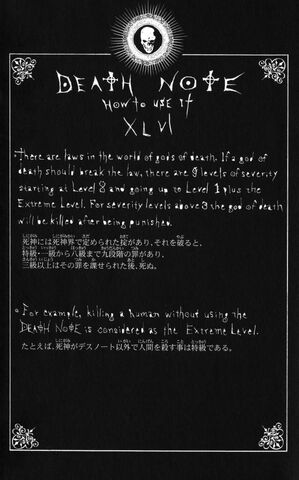 DEATH NOTE
HOW TO USE IT
XLVI
・There are laws in the world of gods of death. If a god of
death should break the law, there are 9 levels of severity
starting at Level 8 and going up to Level 1 plus the
Extreme Level. For severity levels above 3 the god of death
will be killed after being punished.
死神には死神界で定められた掟があり、それを破ると、
特級・一級から八級まで九段階の罪があり、
三級以上はその罪を課せられた後、死ぬ。
・For example, killing a human without using the
DEATH NOTE is considered as the Extreme Level.
たとえば、死神がデスノート以外で人間を殺す事は特級である。